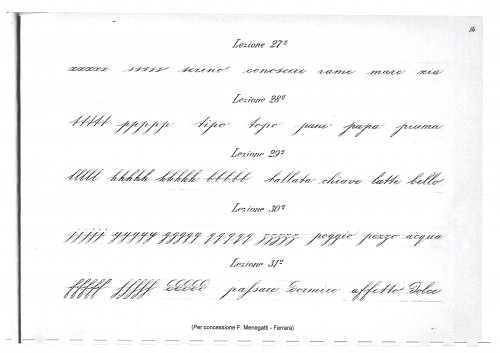 Lezione 27ª
xxxxx sssss sereno conoscere rame mare
Lezione 28ª
ttttt ppppp tipo topo pane papa piuma
Lezione 29ª
lllll hhhhh kkkkk bbbbb ballata chiave latte bello
Lezione 30ª
jjjjj yyyyy ggggg qqqqq zzzzz poggio pozzo acqua
Lezione 31ª
fffff ddddd passare dormire affetto dolce
(Per concessione F. Menegatti - Ferrara)